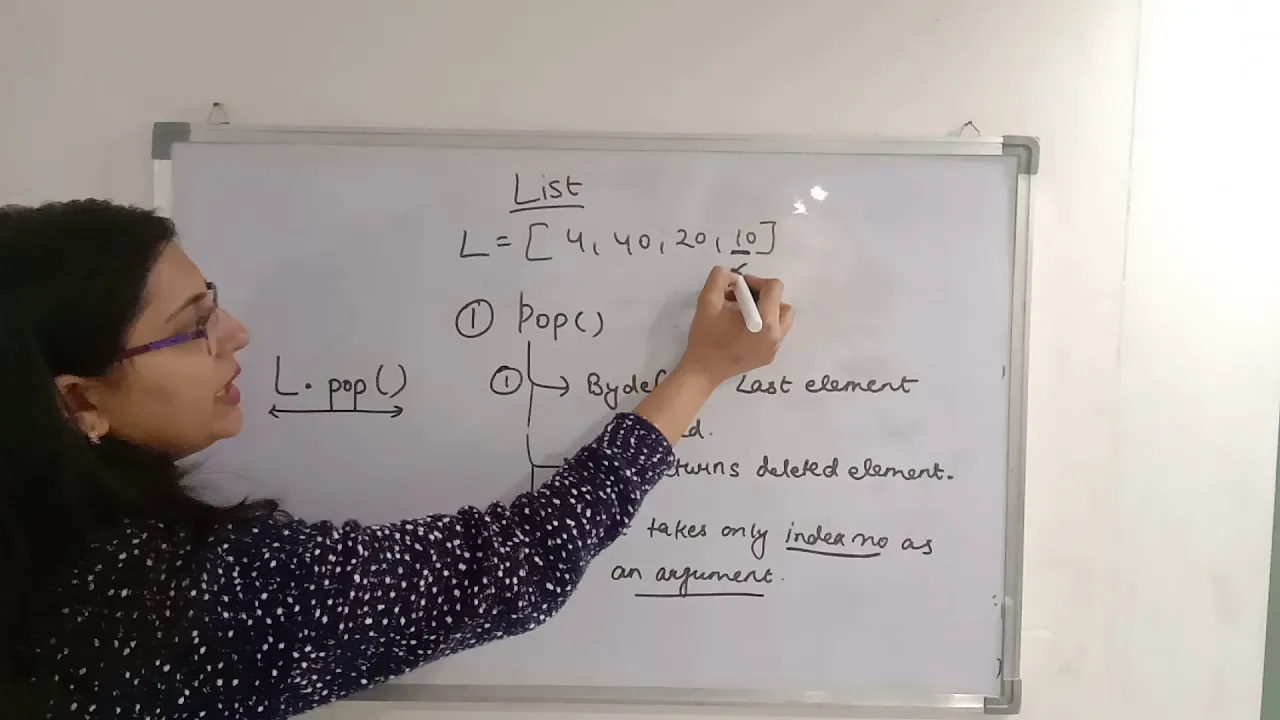 List
L = [ 4, 40, 20, 10 ]
① pop()
L. pop()
① By Last element
deleted element.
takes only index no as
an argument.